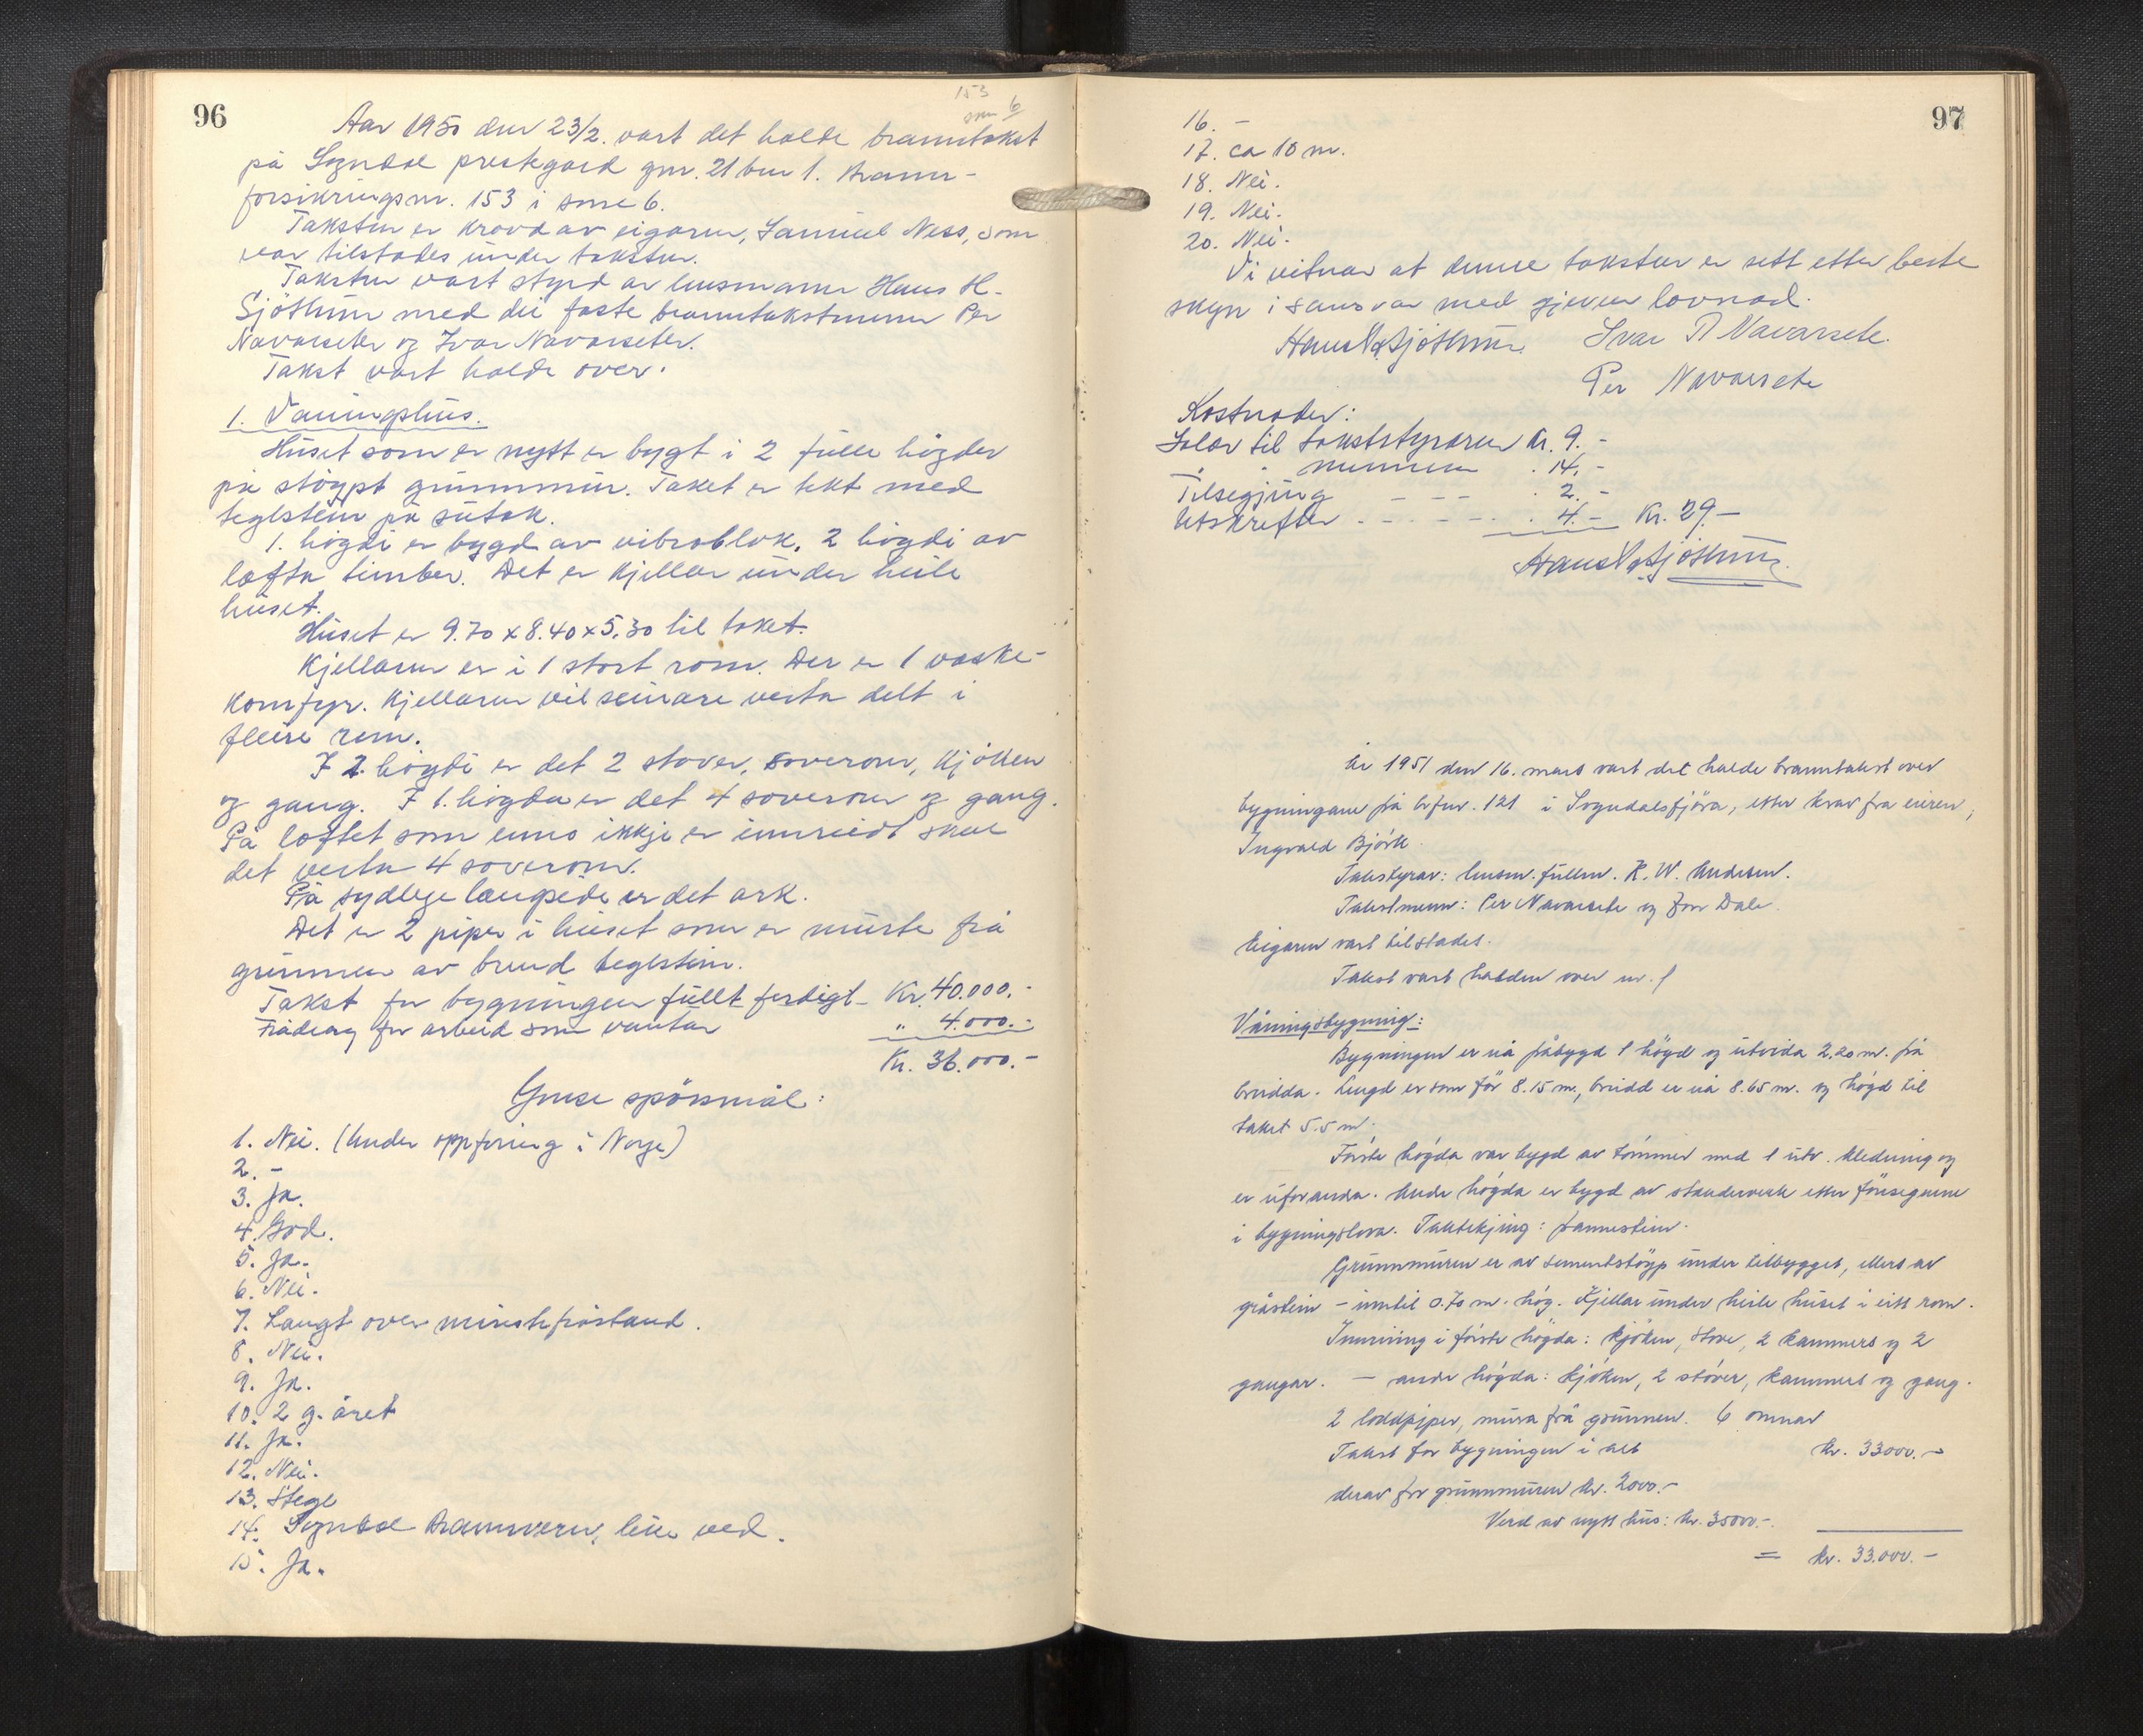 96
153
som 6
Aar 1950 den 23/2. vart det halde branntakst
på Sogndal prestegard gnr. 21 bnr 1. Brann-
forsikringsnr. 153 i sone 6.
Taksten er kravd av eigaren, Samuel Ness, som
var tilstades under taksten.
Taksten vart styrd av lensmann Hans H.
Sjöthun med dei faste branntakstmenn Per
Navarsete og Ivar Navarsete.
Takst vart halde over:
1. Vaaningshus.
Huset som er nytt er bygt i 2 fulle högder
på stöypt grunnmur. Taket er tekt med
teglstein på sutak.
1. högdi er bygd av vibroblok, 2 högdi av
lafta timber. Det er kjellar under heile
huset.
Huset er 9.70 x 8.40 x 5.30 til taket.
Kjellaren er i 1 stort rom. Der er 1 vaske-
komfyr. Kjellaren vil seinare verta delt i
fleire rom.
I 2. högdi er det 2 stover, soverom, kjöken
og gang. I 1. högda er det 4 soverom og gang.
På loftet som enno ikkje er innreidt skal
det verta 4 soverom.
På sydlege langside er det ark.
Det er 2 piper i huset som er murte frå
grunnen av brend teglstein.
Takst for bygningen fullt ferdigt - Kr. 40.000.-
Frådrag for arbeid som vantar " 4.000.-
Kr. 36.000.-
Ymse spörsmål:
1. Nei. (Under oppföring i Norge)
2. -
3. Ja.
4. God.
5. Ja.
6. Nei.
7. Langt over minstefråstand.
8. Nei.
9. Ja.
10. 2 g. året
11. Ja.
12. Nei.
13. Stege
14. Sogndal Brannvern, like ved.
15. Ja.
97
16. -
17. ca 10 m.
18. Nei.
19. Nei.
20. Nei.
Vi vitnar at denne taksten er sett etter beste
skyn i samsvar med gjeven lovnad.
Hans H. Sjöthun. Ivar Navarsete.
Per Navarsete
Kostnader:
Salær til takststyraren Kr. 9.-
" " mennene " 14.-
Tilsegjing - - - " 2.-
Utskrifter . - - - - " 4.- Kr. 29.-
Hans H. Sjöthun.
År 1951 den 16. mars vart det halde branntakst over
bygningane på brfnr. 121 i Sogndalsfjöra, etter krav fra eieren,
Ingvald Björk.
Takstyrar: lensm. fullm. K. W. Andersen.
Takstmenn: Per Navarsete og Jon Dale.
Eigaren vart tilstades.
Takst vart halden over nr. 1
Våningsbygning:
Bygningen er nå påbygd 1 högd og utvida 2.20 m. på
breidda. Lengd er som för 8.15 m., breidd er nå 8.65 m. og högd til
taket 5.5 m.
Förste högda var bygd av tömmer med 1 utv. kledning og
er uforandra. Andre högda er bygd av standerverk etter föresegnene
i bygningslova. Taktekjing: pannestein.
Grunnmuren er av sementstöyp under tilbygget, ellers av
gråstein - inntil 0.70 m. hög. Kjellar under heile huset i eitt rom.
Innreiing i förste högda: kjöken, stove, 2 kammers og 2
gangar. - andre högda: kjöken, 2 stöver, kammers og gang.
2 loddpiper, mura frå grunnen. 6 omnar
Takst for bygningen i alt kr. 33000.-
derav for grunnmuren kr. 2000.-
Verd av nytt hus: kr. 35000.-
= kr. 33.000.-